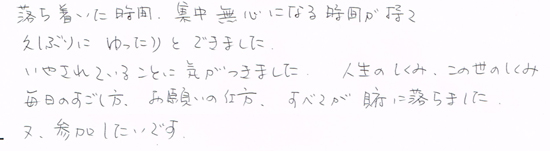 落ち着いた時間、集中 無心になる時間が得て
久しぶりに ゆったりと できました。
いやされていることに気がつきました。 人生のしくみ、この世のしくみ
毎日のすごし方、お願いの仕方、すべてが 腑に落ちました。
又、参加したいです。